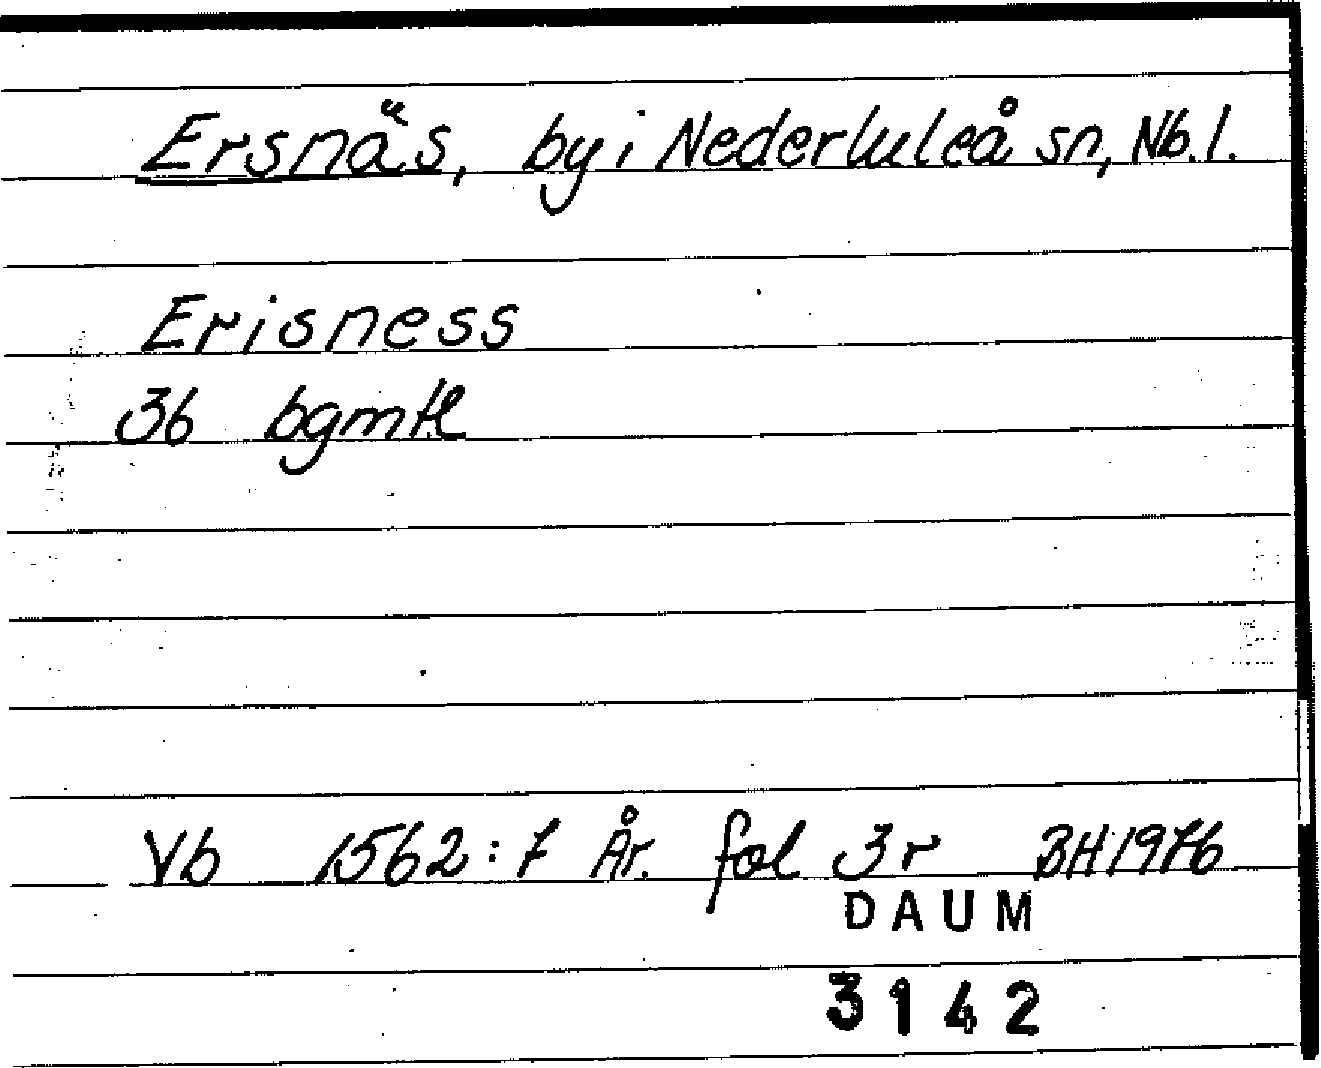 Ersnäs, by i Nederluleå sn, Nb.l.
Erisness
36 bgmtl
Vb 1562:7 År. fol 3r BH1976
DAUM
3142